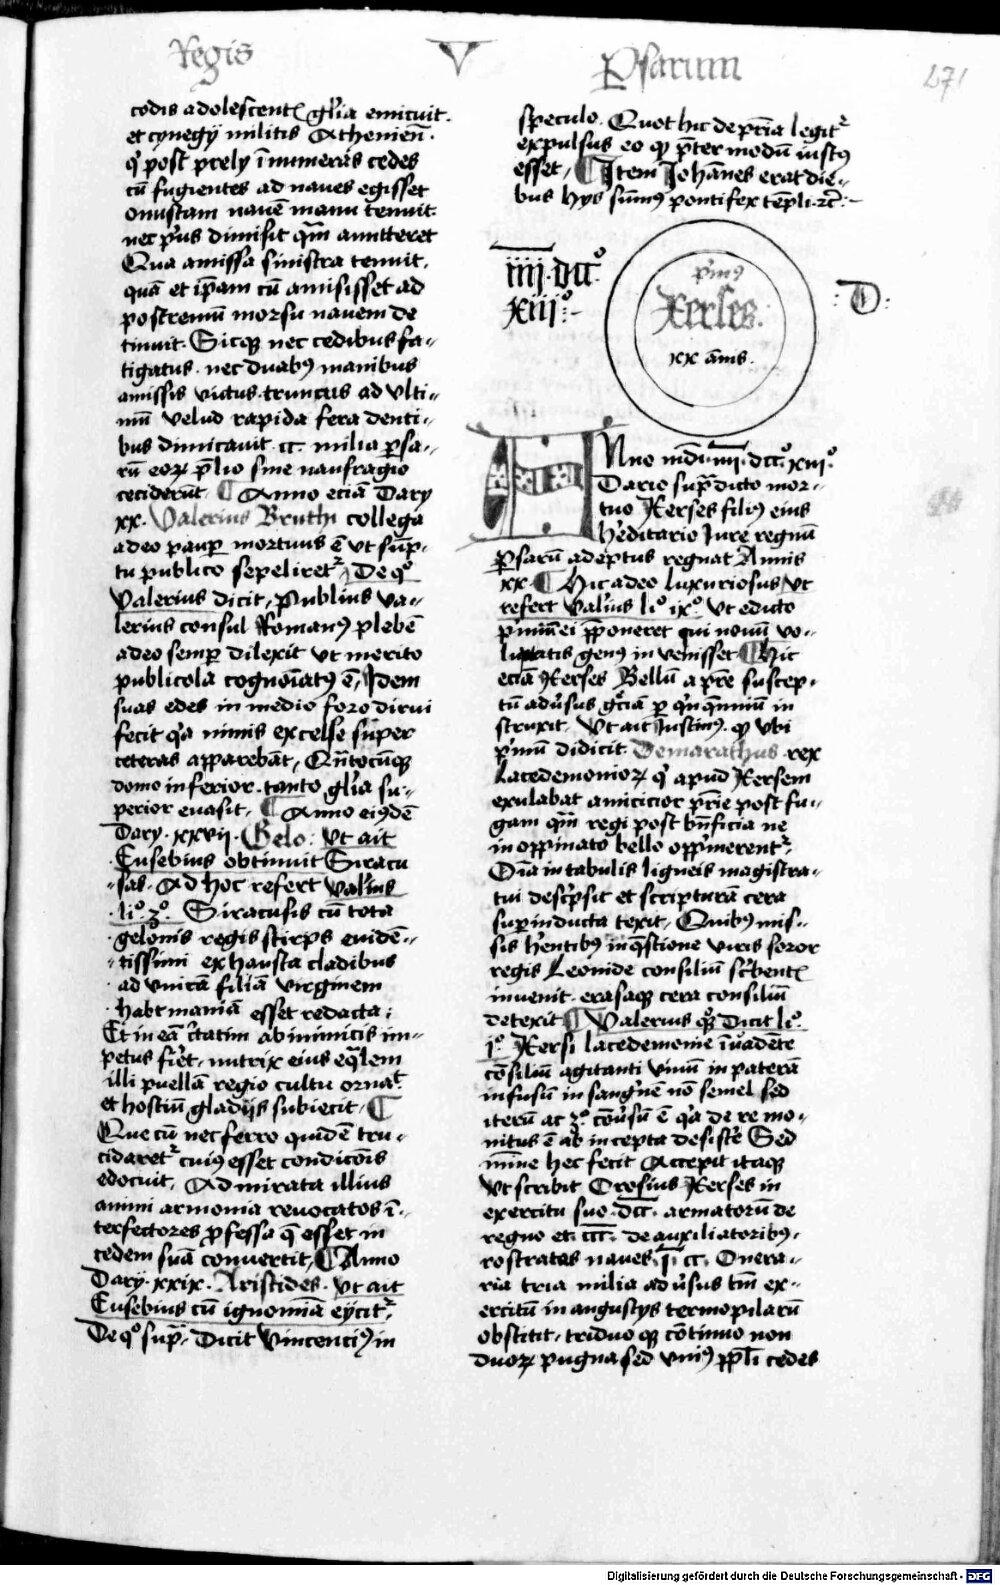 Regis V Persarum
271
codis adolescent gl'ia emicuit.
et cynegij militis Athenien̄.
q' post prely īnumeras cedes
cū fugientes ad naues egisset
onustam nauē manu tenuit.
nec p'us dimisit q̄m amitteret
Qua amissa sinistra tenuit.
quā et ip̄am cū amisisset ad
postremū morsu nauem de
tinuit. Sicq; nec cedibus fa-
tigatus. nec duab9 manibus
amissis victus. truncus ad vlti-
mū velud rapida fera denti-
bus dimicauit. cc. milia p̄sa-
rū eoꝝ p̄lio sine naufragio
ceciderūt. ¶ Anno eciā Dary
xx. Valerius Bruthi collega
adeo paup mortuus ē vt sūp-
tu publico sepeliret'. De qº
Valerius dicit. Publius Va-
lerius consul Roman9 plebē
adeo semp dilexit vt merito
publicola cognoīat9 ē. Idem
suas edes in medio foro dirui
fecit q'a nimis excelse super
ceteras apparebāt. Qūtocūq;
domo inferior. tanto gl'ia su-
perior euasit. ¶ Anno eiꝰdē
Dary. xxvij. Gelo. vt ait
Eusebius obtinuit Siracu
sas. Ad hoc refert Val'ius
li.º 3.º Siracusis cū tota
gelonis regis stirps euidē-
tissimi exhausta cladibus
ad vnicā filiā virginem
habt maniā esset redacta;
Et in eā c'tatim ab inimicis im-
petus fiēt. nutrix eius eq̄lem
illi puellā regio cultu ornat
et hostiū gladijs subiecit. ¶
Que cū nec ferro quidē tru-
cidaret' cui9 esset condicōis
edocuit. Admirata illius
animi armonia reuocatos ī-
terfectores p̄fessa q̄ esset in
cedem suā conuertit. ¶ Anno
Dary. xxix. Aristides. vt ait
Eusebius cū ignomīa eijcit'.
De qº sup̄. Dicit Vincenci9 in
speculo. Quot hic de pr̄ia legit'
expulsus eo q' p̄ter modū iust9
esset. ¶ Item Johānes erat die-
bus hys sum̄9 pontifex tēpli. rc̄.
iiij. dcc.º
xiij.º
p'm9
Xerses.
xx ānis.
D
Anno mūdi. iiij. dcc.º xiij.º
Dario sup̄dicto mor-
tuo Xerses fili9 eius
h'editario Iure regnū
p̄sarū adeptus regnat Annis
xx. ¶ Hic adeo luxuriosus vt
refert Val'ius li.º ix.º vt edicto
p'miū ei p̄poneret qui nouū vo-
luptatis gen9 in venisset ¶ Hic
eciā Xerses Bellū a p̄re suscep-
tū adu'sus gr̄ciā p q'nq̄nniū in
struxit. Vt ait Iustin9. q' vbi
p'mū didicit. Demarathus rex
Lacedemonioꝝ q' apud Xersem
exulabat amicicior p̄rie post fu-
gam q̄m regi post bn̄ficia ne
in oppinato bello opp'merent'.
Oīa in tabulis ligneis magistra-
tui desc'psit et scripturā cera
sup inducta texit. Quibus mis-
sis h'entib9 in q̄stione viris soror
regis Leonide consiliū sc'bent
inuenit. erasaq; cera consiliū
detexit ¶ Valerius q' Dicit li.º
j.º Xersi lacedemonie īuadēte
cōsiliū agitanti vinū in paterā
infusū in sang'nē nō semel sed
iterū ac 3.º cōu'sū ē q'a de re mo-
nitus ē ab incepta desist'e Sed
mīne hec fecit Accepit itaq;
Vt scribit Orosius Xerses in
exercitu suo. dcc. armatorū de
regno et. ccc. de auxiliatoribus.
rostratas naues. j cc. Onera-
ria tria milia adu'sus tm̄ ex-
ercitū in angustys termopilarū
obstitit. triduo q; cōtinuo non
duoꝝ pugna sed vni9 pp̄li cedes
Digitalisierung gefördert durch die Deutsche Forschungsgemeinschaft - DFG